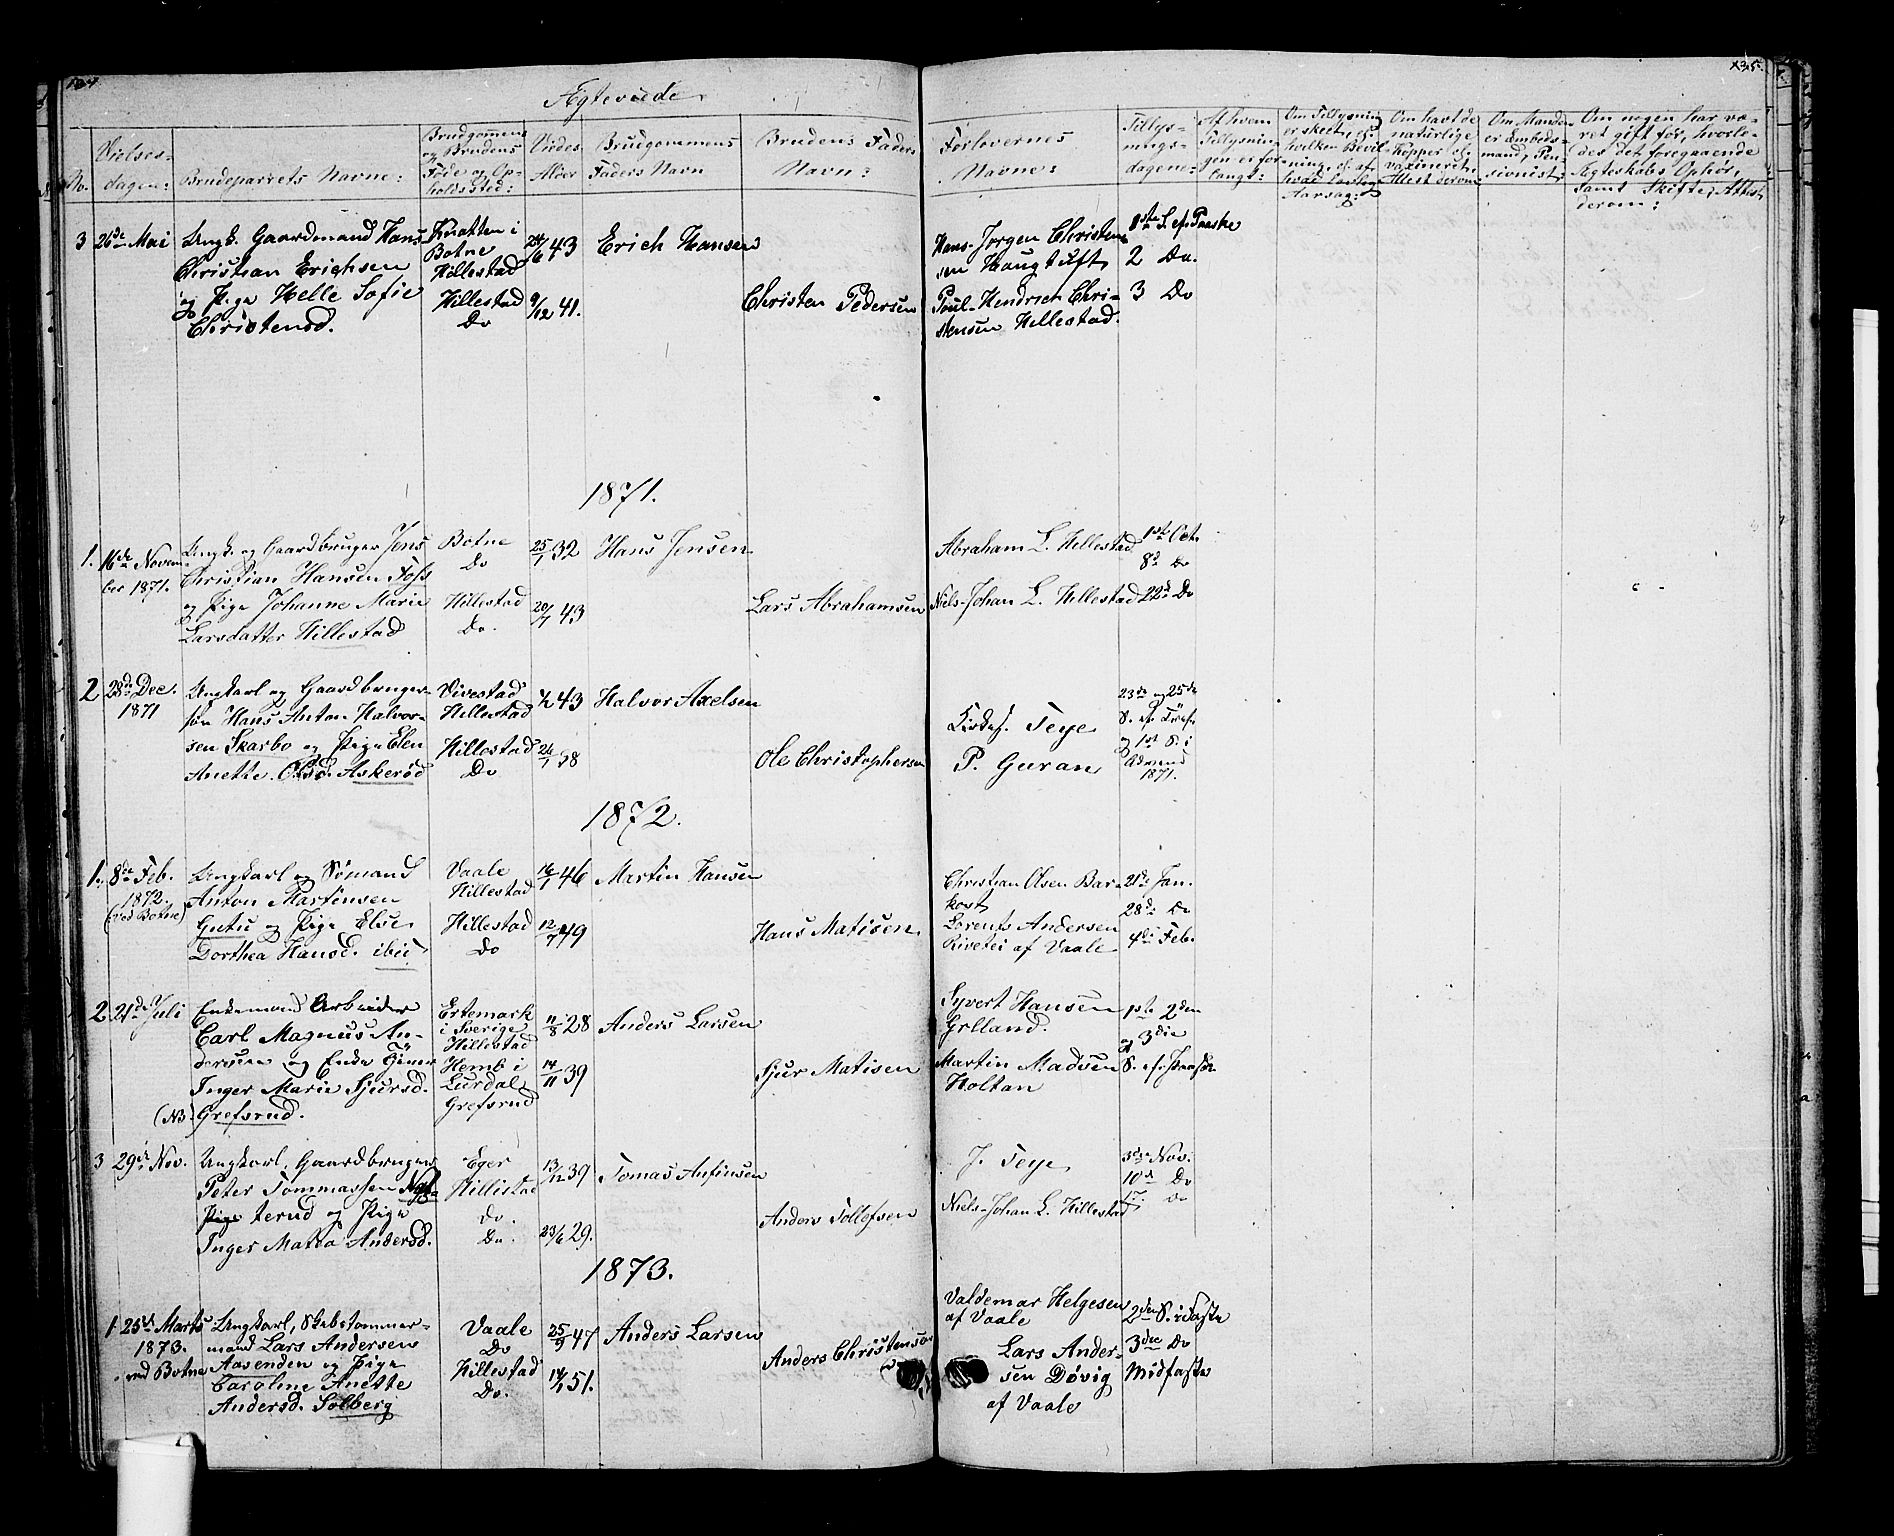 135.
Ægteviede
No.
Vielses-
dagen:
Brudeparrets Navne:
Brudgomens
og Brudens
Føde og Op-
holdssted:
Viedes
Alder
Brudgommens
Faders Navn
Brudens Faders
Navn:
Forlovernes
Navne:
Tillys-
nings-
dagene:
Af hvem
Tillysnin-
gen er for-
langt:
Om Tillysning
er skeet, el.
hvilken Bevil-
ning, el. af
hvad lovlig
Aarsag:
Om havt de
naturlige
Kopper el.
vaxineret,
Attest derom:
Om Manden
er Embeds-
mand, Pen-
sionist:
Om nogen har væ-
ret gift før, hvorle-
des det foregaaende
Ægteskabs Ophør,
samt Skifte, Attest
derom:
3 26de Mai
Ungk. Gaardmand Hans
Christian Erichsen
og Pige Helle Sofie
Christensd.
Knatten i
Botne
Hillestad
Hillestad
Do
24/6 43
9/12 41.
Erich Hansen
Christen Pedersen
Hans Jørgen Christen-
sen Haugtuft
Poul Hendrich Chri-
stensen Hillestad.
1ste S. ef. Paaske
2 Do.
3 Do
1871.
1. 16de Novem-
ber 1871.
Ungk. og Gaardbruger Jens
Christian Hansen Foss
og Pige Johanne Marie
Larsdatter Hillestad
Botne
Do
Hillestad
Do.
25/1 32
20/7 43
Hans Jensen
Lars Abrahamsen
Abraham L. Hillestad
Niels Johan L. Hillestad
1ste Oct.
8de Do
22de Do
2 28de Dec.
1871
Ungkarl og Gaardbruger-
søn Hans Anton Halvor-
sen Skarbo og Pige Elen
Anette Olsd. Askerød
Vivestad
Hillestad
Hillestad
Do
43
Halvor Axelsen
Ole Christophersen
Kirkes. Teye
P. Guran
23de og 25de
S. ef. Tref.
og 1st S. i
Advend
1871.
1872.
1. 8de Feb.
1872.
(ved Botne)
Ungkarl og Sømand
Anton Martinsen
Gutu og Pige Else
Dorthea Hansd. ibid
Vaale
Hillestad
Hillestad
Do
16/1 46
12/7 49
Martin Hansen
Hans Matisen
Christian Olsen Bar-
kost
Lorents Andersen
Rivetei af Vaale
21de Jan.
28de Do
4de Feb.
2 21de Juli
Enkemand Arbeider
Carl Magnus An-
dersen og Enke
Inger Marie Sjursd.
(NB) Grefsrud.
Ertemark
i Sverige
Hillestad
Hemb i
Lurdal
Grefsrud
11/8 28
14/11 39
Anders Larsen
Sjur Matisen
Syvert Hansen
Grlland.
Martin Madsen
Holtan
1ste 2den
og 3die
3 29de Nov.
Ungkarl, Gaardbruger
Peter Tommassen
terud og Pige
Inger Matea Andersd.
Eger
Hillestad
Do.
Do.
13/12 39
23/6 29.
Tomas Anfinsen
Anders Tollefsen
J. Teye
Niels Johan L. Hillestad
3de Nov.
10de Do
17. Do
1873.
1 25de Marts
1873.
ved Botne
Ungkarl, Skibstømmer-
mand Lars Andersen
Aasenden og Pige
Caroline Anette
Andersd. Solberg
Vaale
Do
Hillestad
Do.
25/9 47
14/1 51.
Anders Larsen
Anders Christensen
Valdemar Helgesen
af Vaale
Lars Ander-
sen Døvig
af Vaale
2den S. i Faste
3die Do
Midfaste